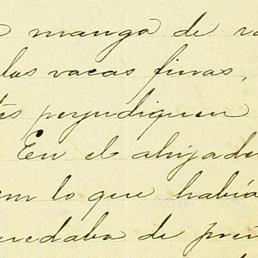 manga de va
las vacas finas,
perjudiquen
En el ahijade
lo que había
uedaba de pre